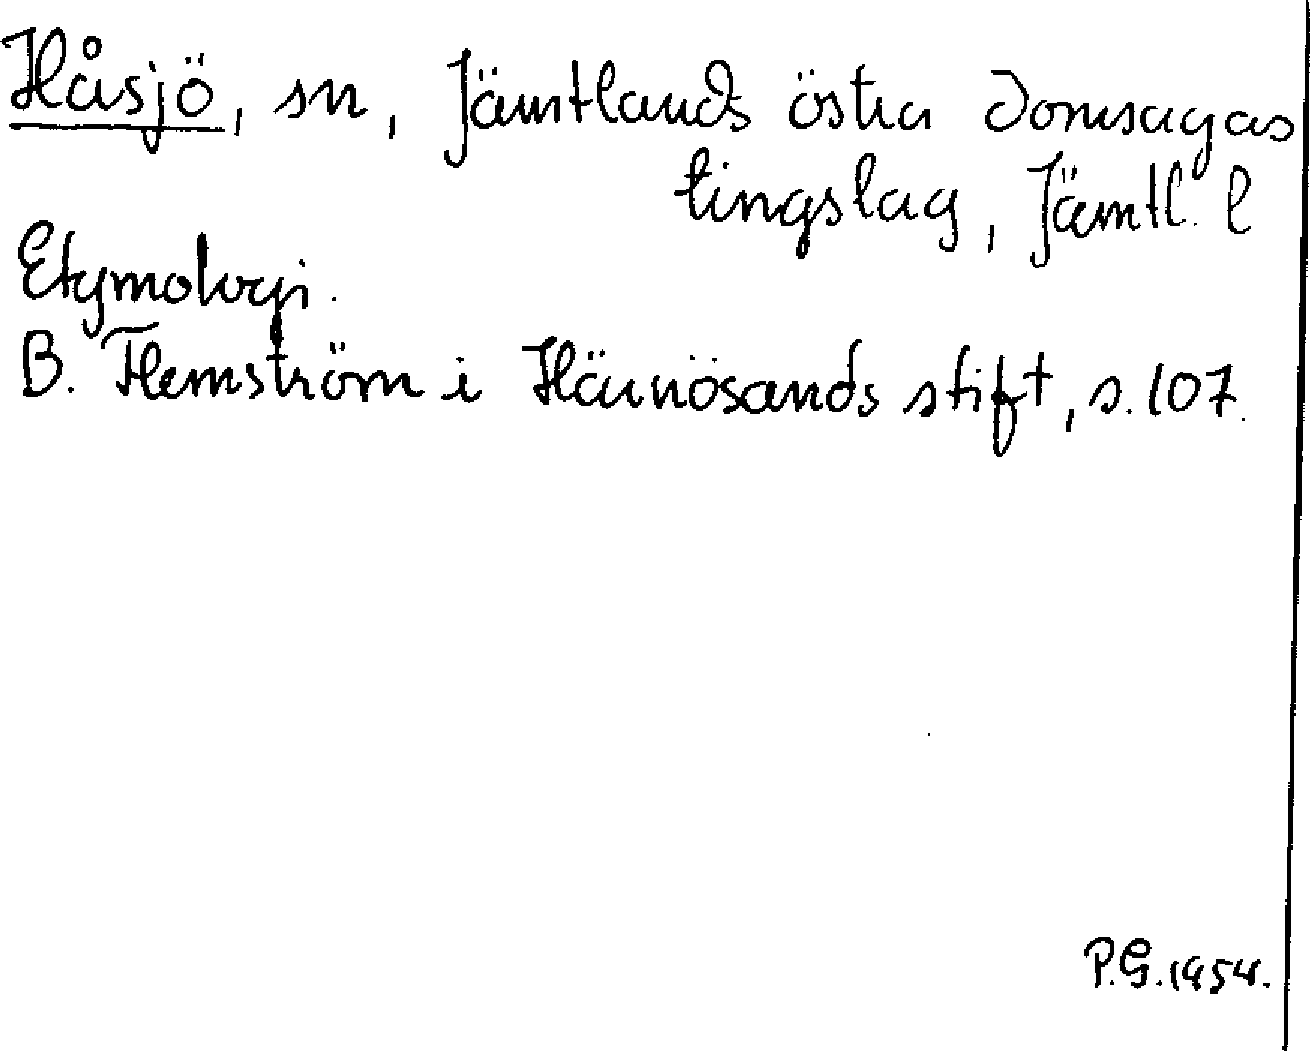 Håsjö, sn, Jämtlands östra domsagas
tingslag, Jämtl. l
Etymologi.
B. Flemström i Härnösands stift, s. 107.
P.G. 1954.